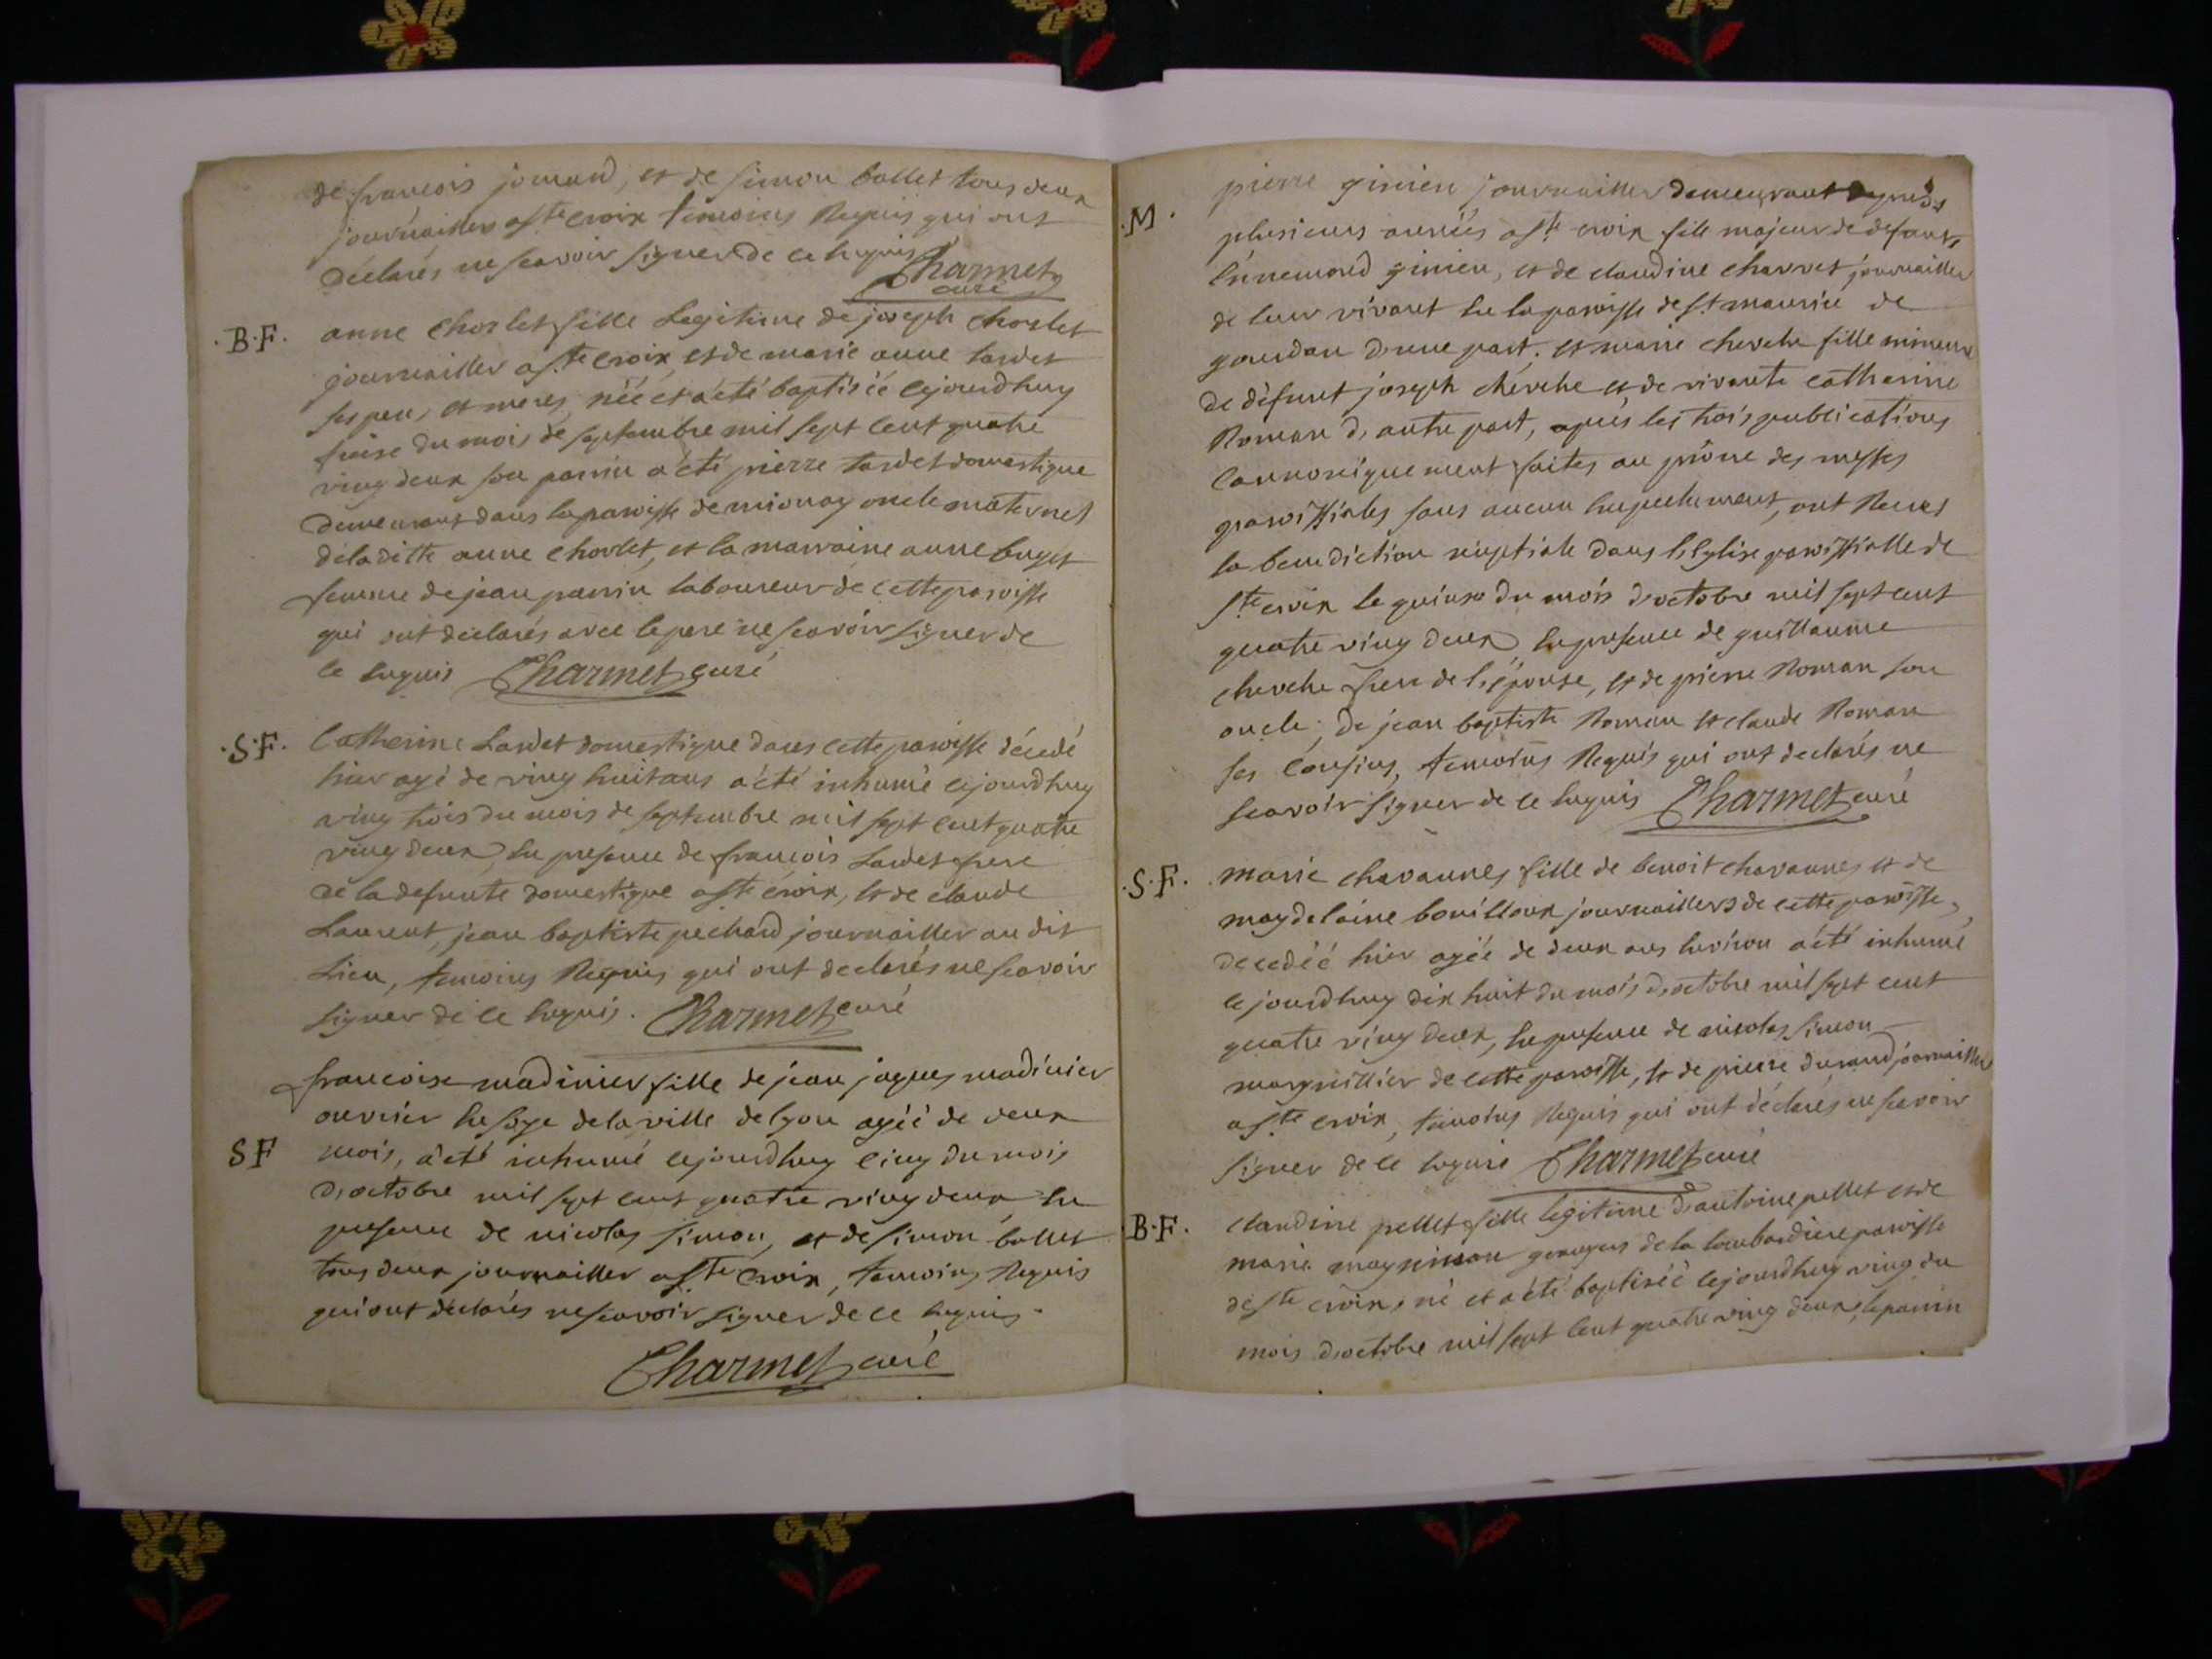 de francois jomand, et de simon ballet tous deux
journaillers a ste croix temoins Requis qui ont
déclarés ne scavoir signer de ce Enquis Charmet
curé
.B.F. anne Chorlet fille Legitime de joseph Chorlet
journaillier a ste Croix, et de marie anne tardet
ses pere, et mere, néé et a été baptiséé cejourdhuy
seise du mois de septembre mil sept cent quatre
ving deux son parrin a été pierre tardet domestique
demeurant dans la paroisse de mionay oncle maternel
de la ditte anne Chorlet, et la marraine anne buget
femme de jean parrin laboureur de cette paroisse
qui ont déclarés avec le pere ne scavoir signer de
ce Enquis Charmet curé
.S.F. Catherine Lardet domestique dans cette paroisse décédé
hier agé de ving huit ans a été inhumé cejourdhuy
ving trois du mois de septembre mil sept cent quatre
ving deux, En presence de francois Lardet frere
de la defunte domestique a ste croix, et de claude
Laurent, jean baptiste pechard journaillier au dit
Lieu, temoins Requis qui ont declarés ne scavoir
signer de ce Enquis. Charmet curé
francoise madinier fille de jean jaques madinier
ouvrier En soye de la ville de lyon agéé de deux
SF mois, a été inhumé cejourdhuy cinq du mois
d'octobre mil sept cent quatre ving deux, En
presence de nicolas simon, et de simon ballet
tous deux journaillier a ste Croix, temoins Requis
qui ont déclarés ne scavoir signer de ce Enquis.
Charmet curé
.M. pierre ginien journaillier demeurant depuis
plusieurs années a ste croix fils majeur de defunt
Ennemond ginien, et de claudine charvet journaillier
de leur vivant En la paroisse de st maurice de
gourdan d'une part, et marie cherche fille mineure
de défunt joseph chérche et de vivante catherine
Roman d'autre part, apres les trois publications
Cannoniquement faites au prône des messes
paroissiales sans aucun Empechement, ont Reçus
la benediction nuptiale dans l'Eglise paroissialle de
ste croix le quinze du mois d'octobre mil sept cent
quatre ving deux, En presence de guillaume
cherche frere de l'épouse, et de pierre Roman son
oncle, de jean baptiste Roman et claude Roman
ses Cousins, temoins Requis qui ont declarés ne
scavoir signer de ce Enquis Charmet curé
.S.F. marie chavannes fille de benoit chavannes et de
maydelaine bouilloux journailliers de cette paroisse,
decedéé hier agéé de deux ans Environ a été inhumé
cejourdhuy dix huit du mois d'octobre mil sept cent
quatre ving deux, En presence de nicolas simon
marguillier de cette paroisse, et de pierre durand journaillier
a ste croix, temoins Requis qui ont déclarés ne scavoir
signer de ce Enquis Charmet curé
.B.F. claudine pellet fille legitime d'antoine pellet et de
marie grangers de la lombardiere paroisse
de ste croix, né et a été baptiséé cejourdhuy ving du
mois d'octobre mil sept cent quatre ving deux, le parrin